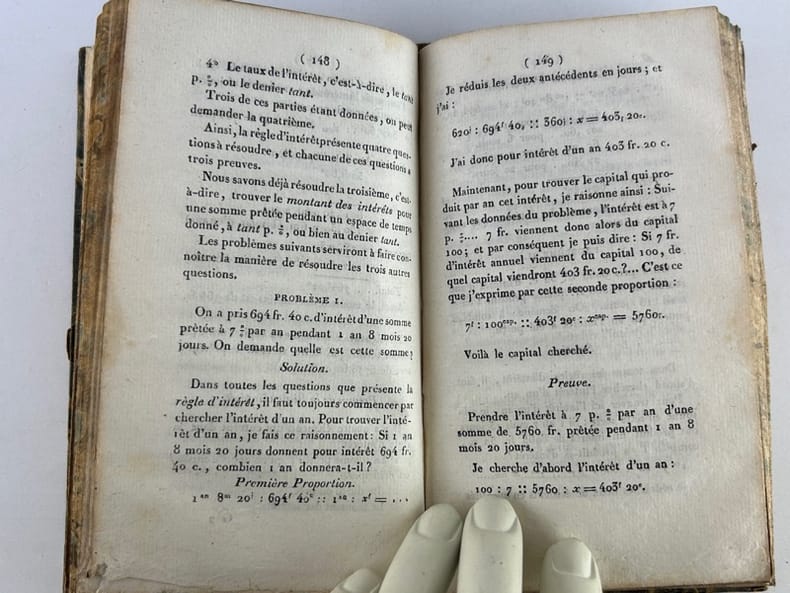 ( 148 )
4° Le taux de l'intérêt, c'est-à-dire, le tant
p. %, ou le denier tant.
Trois de ces parties étant données, on peut
demander la quatrième.
Ainsi, la règle d'intérêt présente quatre ques-
tions à résoudre, et chacune de ces questions a
trois preuves.
Nous savons déjà résoudre la troisième, c'est-
à-dire, trouver le montant des intérêts pour
une somme prêtée pendant un espace de temps
donné, à tant p. %, ou bien au denier tant.
Les problèmes suivants serviront à faire con-
noître la manière de résoudre les trois autres
questions.
PROBLÈME I.
On a pris 694 fr. 40 c. d'intérêt d'une somme
prêtée à 7 % par an pendant 1 an 8 mois 20
jours. On demande quelle est cette somme?
Solution.
Dans toutes les questions que présente la
règle d'intérêt, il faut toujours commencer par
chercher l'intérêt d'un an. Pour trouver l'inté-
rêt d'un an, je fais ce raisonnement: Si 1 an
8 mois 20 jours donnent pour intérêt 694 fr.
40 c., combien 1 an donnera-t-il?
Première Proportion.
1an 8m 20j : 694f 40c :: 1an : xf = ...
( 149 )
Je réduis les deux antécédents en jours; et
j'ai:
620j : 694f 40c :: 360j : x = 403f 20c.
J'ai donc pour intérêt d'un an 403 fr. 20 c.
Maintenant, pour trouver le capital qui pro-
duit par an cet intérêt, je raisonne ainsi: Sui-
vant les données du problème, l'intérêt est à 7
p. %.... 7 fr. viennent donc alors du capital
100; et par conséquent je puis dire: Si 7 fr.
d'intérêt annuel viennent du capital 100, de
quel capital viendront 403 fr. 20 c.?... C'est ce
que j'exprime par cette seconde proportion:
7f : 100cap. :: 403f 20c : xcap. = 5760f.
Voilà le capital cherché.
Preuve.
Prendre l'intérêt à 7 p. % par an d'une
somme de 5760 fr. prêtée pendant 1 an 8
mois 20 jours.
Je cherche d'abord l'intérêt d'un an:
100 : 7 :: 5760 : x = 403f 20c.